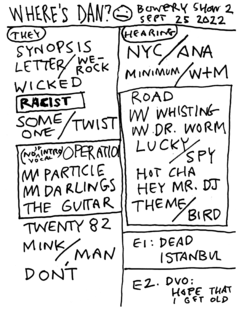 WHERE'S DAN?
BOWERY SHOW 2
SEPT 25 2022
THEY
SYNOPSIS
LETTER/WE-ROCK
WICKED
RACIST
SOME ONE/TWIST
OPERATION
PARTICLE
DARLINGS
THE GUITAR
TWENTY 82
MINK/MAN
DON'T
HEARING
NYC/ANA
MINIMUM/W+M
ROAD
WHISTING
DR. WORM
LUCKY/SPY
HOT CHA
HEY MR. DJ
THEME/BIRD
E1: DEAD
ISTANBUL
E2. DVO:
HOPE THAT
I GET OLD